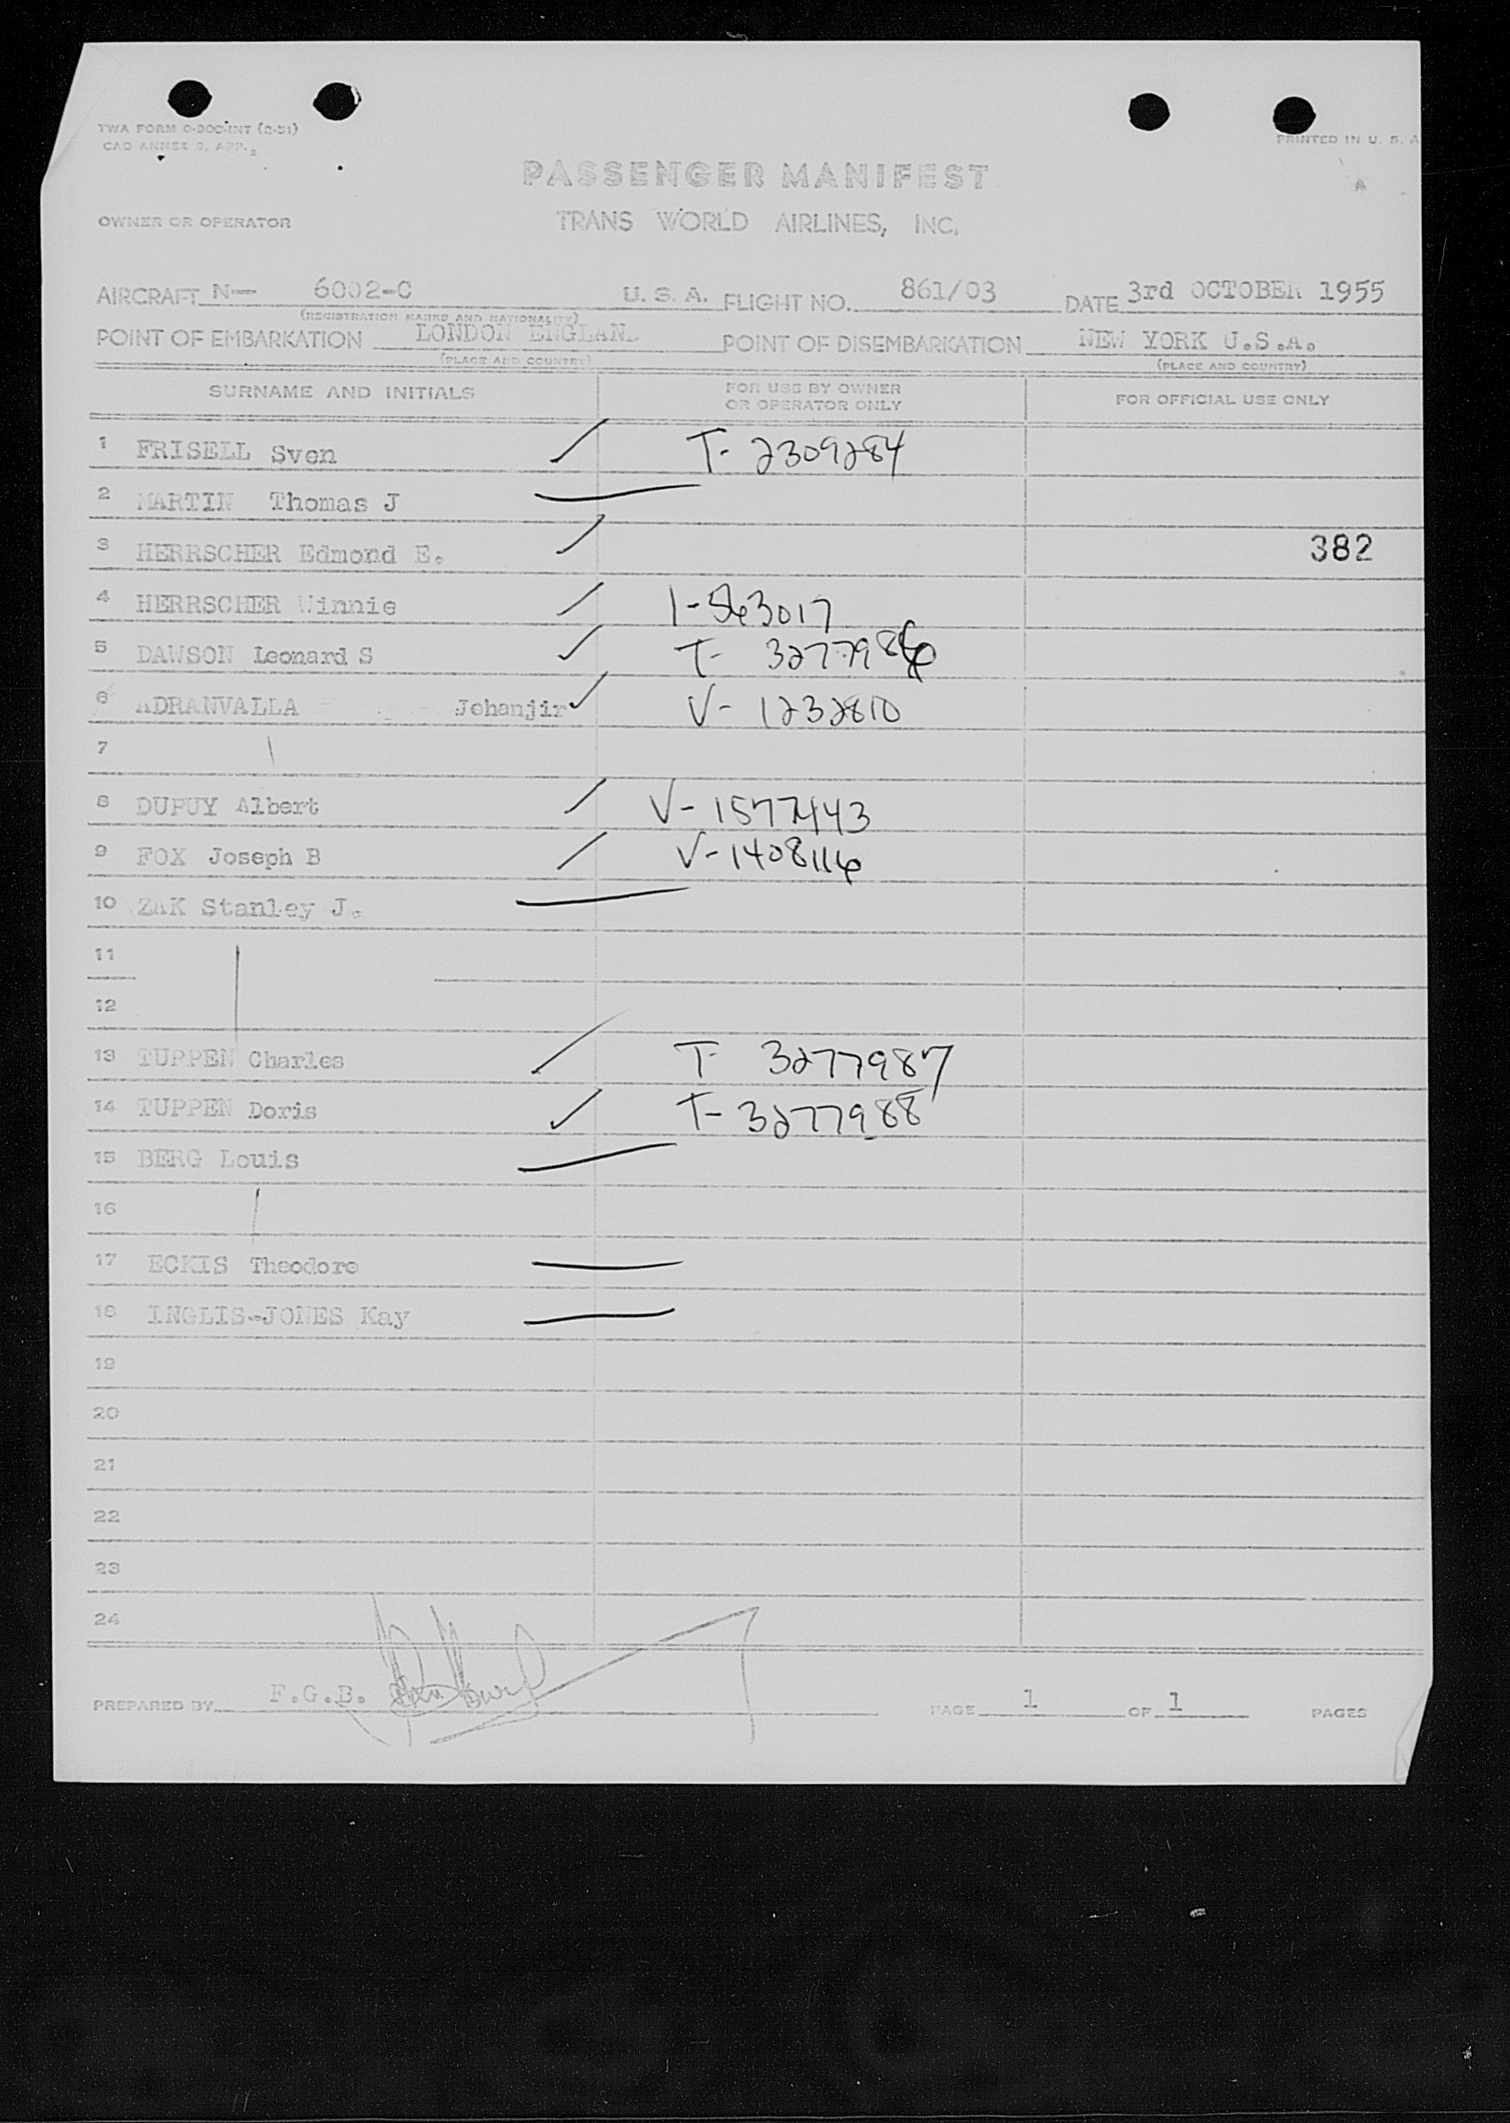 TWA FORM 0-300-INT (2-51)
CAO ANNEX 9, APP. 2
PRINTED IN U. S. A
PASSENGER MANIFEST
OWNER OR OPERATOR TRANS WORLD AIRLINES, INC.
AIRCRAFT N— 6002-C U. S. A. FLIGHT NO. 861/03 DATE 3rd OCTOBER 1955
(REGISTRATION MARKS AND NATIONALITY)
POINT OF EMBARKATION LONDON ENGLAND POINT OF DISEMBARKATION NEW YORK U.S.A.
(PLACE AND COUNTRY) (PLACE AND COUNTRY)
SURNAME AND INITIALS FOR USE BY OWNER OR OPERATOR ONLY FOR OFFICIAL USE ONLY
1 FRISELL Sven T- 2309284
2 MARTIN Thomas J
3 HERRSCHER Edmond E. 382
4 HERRSCHER Winnie 1-563017
5 DAWSON Leonard S T- 3277986
6 ADRANVALLA Johanjir V- 1232810
7
8 DUPUY Albert V- 1577443
9 FOX Joseph B V-1408116
10 ZAK Stanley J.
11
12
13 TUPPEN Charles T- 3277987
14 TUPPEN Doris T-3277988
15 BERG Louis
16
17 ECKIS Theodore
18 INGLIS-JONES Kay
19
20
21
22
23
24
PREPARED BY F.G.B. PAGE 1 OF 1 PAGES